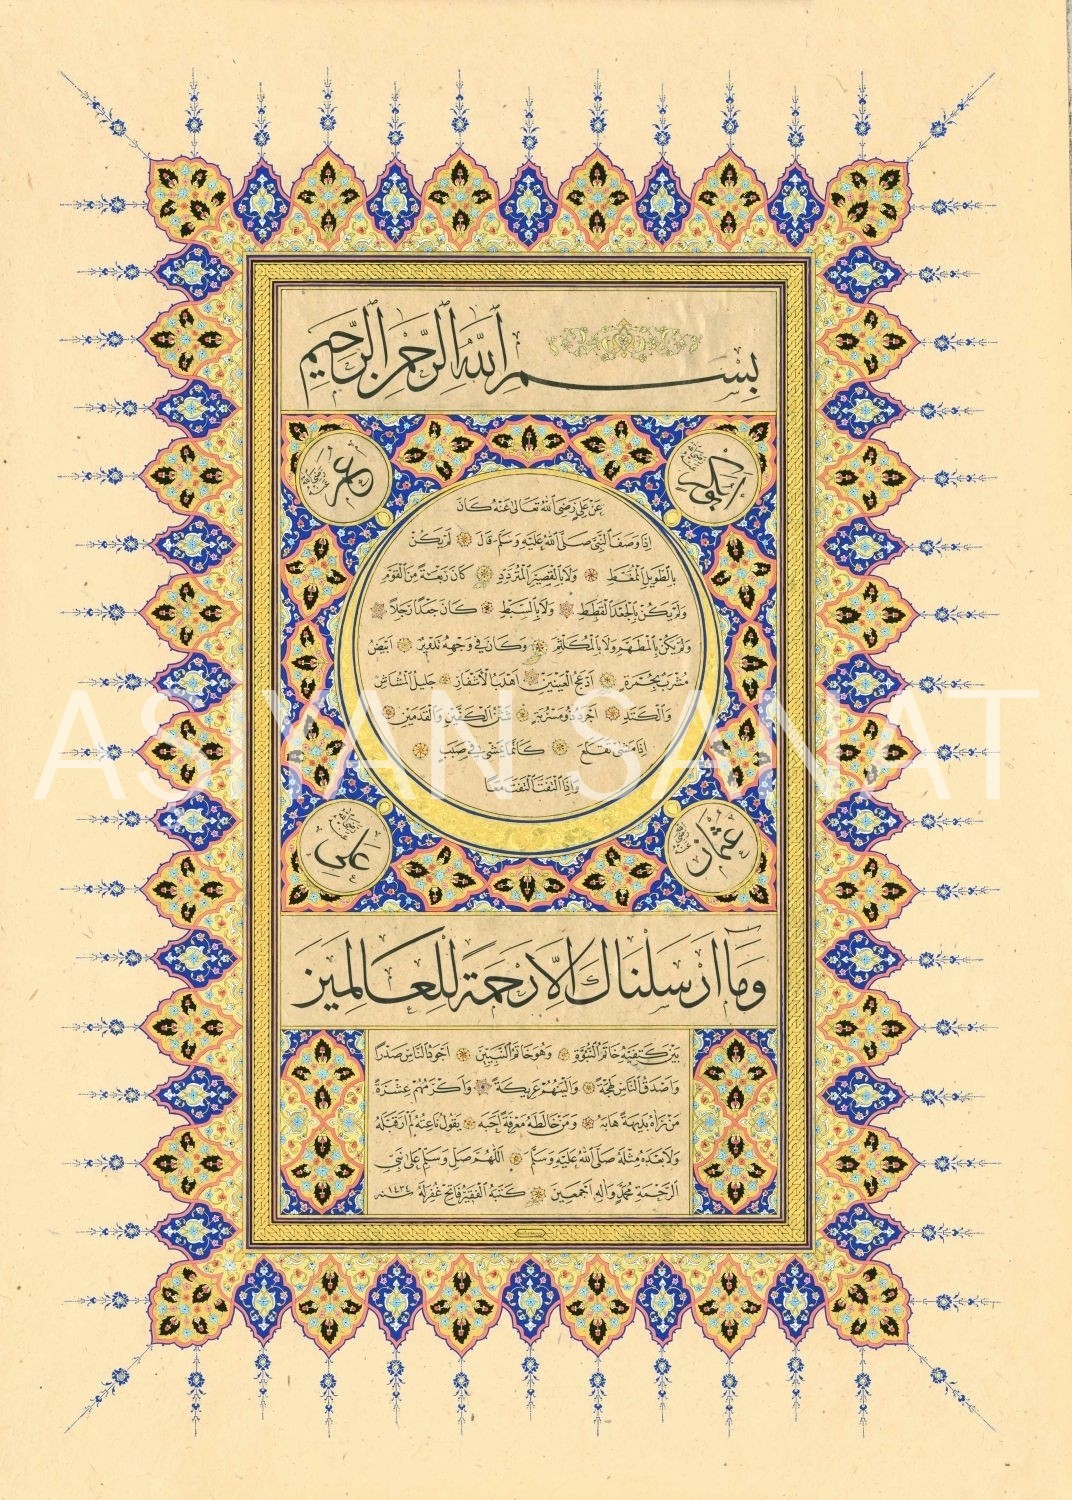 بِسْمِ اللّٰهِ الرَّحْمٰنِ الرَّحِيمِ
ابوبكر رضي الله عنه
عمر رضي الله عنه
عَنْ عَلِيٍّ رَضِيَ اللهُ تَعَالٰى عَنْهُ كَانَ
اِذَا وَصَفَ النَّبِيَّ صَلَّى اللهُ عَلَيْهِ وَسَلَّمَ قَالَ لَمْ يَكُنْ
بِالطَّوِيلِ الْمُمَّغِطِ وَلَا بِالْقَصِيرِ الْمُتَرَدِّدِ كَانَ رَبْعَةً مِنَ الْقَوْمِ
وَلَمْ يَكُنْ بِالْجَعْدِ الْقَطَطِ وَلَا بِالسَّبْطِ كَانَ جَعْدًا رَجِلًا
وَلَمْ يَكُنْ بِالْمُطَهَّمِ وَلَا بِالْمُكَلْثَمِ وَكَانَ فِي وَجْهِهِ تَدْوِيرٌ اَبْيَضُ
مُشْرَبٌ بِحُمْرَةٍ اَدْعَجُ الْعَيْنَيْنِ اَهْدَبُ الْاَشْفَارِ جَلِيلُ الْمُشَاشِ
وَالْكَتَدِ اَجْرَدُ ذُو مَسْرُبَةٍ شَثْنُ الْكَفَّيْنِ وَالْقَدَمَيْنِ
اِذَا مَشٰى تَقَلَّعَ كَاَنَّمَا يَمْشِي فِي صَبَبٍ
وَاِذَا الْتَفَتَ الْتَفَتَ مَعًا
عثمان رضي الله عنه
علي رضي الله عنه
وَمَا اَرْسَلْنَاكَ اِلَّا رَحْمَةً لِلْعَالَمِينَ
بَيْنَ كَتِفَيْهِ خَاتَمُ النُّبُوَّةِ وَهُوَ خَاتَمُ النَّبِيِّينَ اَجْوَدُ النَّاسِ صَدْرًا
وَاَصْدَقُ النَّاسِ لَهْجَةً وَاَلْيَنُهُمْ عَرِيكَةً وَاَكْرَمُهُمْ عِشْرَةً
مَنْ رَاٰهُ بَدِيهَةً هَابَهُ وَمَنْ خَالَطَهُ مَعْرِفَةً اَحَبَّهُ يَقُولُ نَاعِتُهُ لَمْ اَرَ قَبْلَهُ
وَلَا بَعْدَهُ مِثْلَهُ صَلَّى اللهُ عَلَيْهِ وَسَلَّمَ اَللّٰهُمَّ صَلِّ وَسَلِّمْ عَلٰى نَبِيِّ
الرَّحْمَةِ مُحَمَّدٍ وَاٰلِهِ اَجْمَعِينَ كَتَبَهُ الْفَقِيرُ فَاتِح غُفِرَلَهُ
ASIYAN SANAT